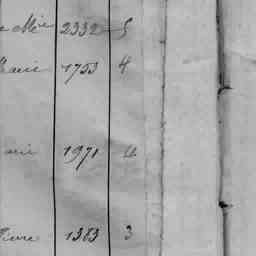 Mie 2332 5
Marie 1753 4
arie 1971 4
Pierre 1383 3